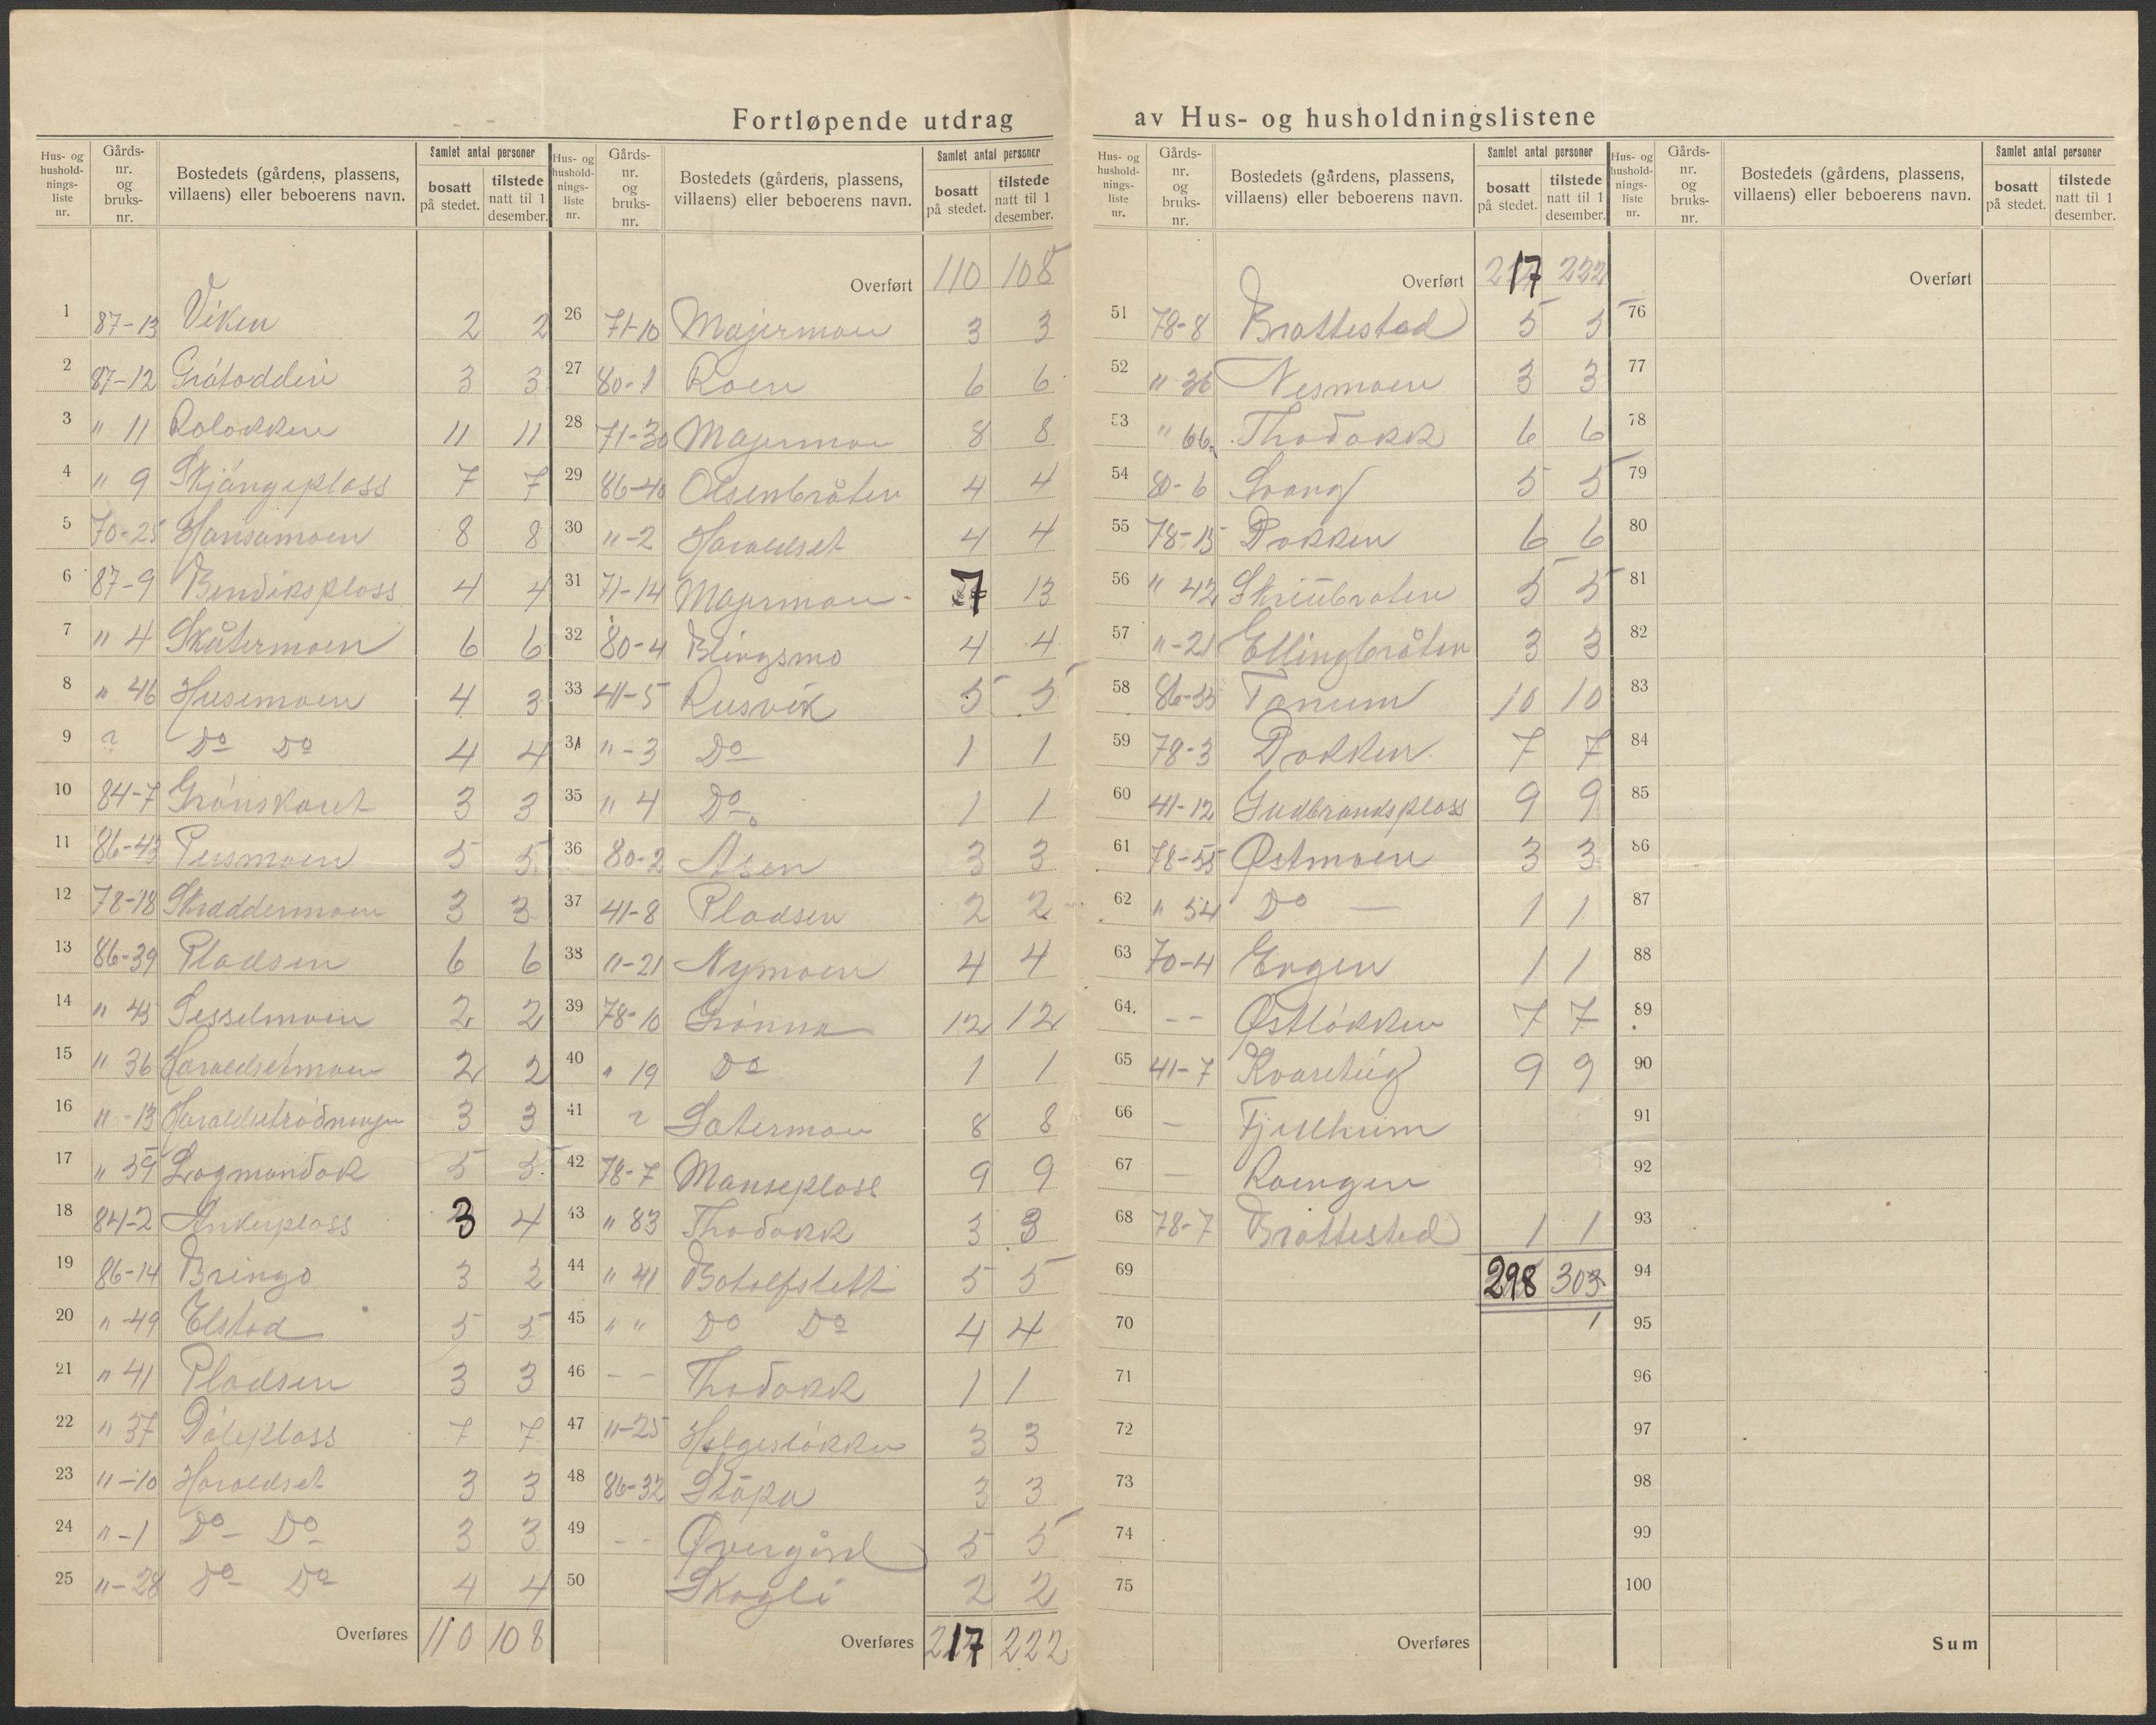 Fortløpende utdrag av Hus- og husholdningslistene
Hus- og husholdnings-liste nr. | Gårds-nr. og bruks-nr. | Bostedets (gårdens, plassens, villaens) eller beboerens navn. | Samlet antal personer | bosatt på stedet. | tilstede natt til 1 desember.
1 87-13 Viken 2 2
2 87-12 Gråtoddin 3 3
3 " 11 Roløkken 11 11
4 " 9 Skjångeplass 7 7
5 70-25 Hansamoen 8 8
6 87-9 Bendiksplass 4 4
7 " 4 Skåtermoen 6 6
8 " 46 Husemoen 4 3
9 ? Do Do 4 4
10 84-7 Grønskart 3 3
11 86-43 Persmoen 5 5
12 78-18 Skraddermoen 3 3
13 86-39 Pladsen 6 6
14 " 45 Sesselmoen 2 2
15 " 36 Haraldsetmoen 2 2
16 "-13 3 3
17 " 59 Lagmandsøk 5 5
18 84-2 Ankerplass 3 4
19 86-14 Bringo 3 2
20 " 49 Elstad 5 5
21 " 41 Pladsen 3 3
22 " 37 Døleplass 7 7
23 "-10 Haraldset 3 3
24 "-1 Do Do 3 3
25 "-28 Do Do 4 4
Overføres 110 108
Hus- og husholdnings-liste nr. | Gårds-nr. og bruks-nr. | Bostedets (gårdens, plassens, villaens) eller beboerens navn. | Samlet antal personer | bosatt på stedet. | tilstede natt til 1 desember.
Overført 110 108
26 71-10 Majermoen 3 3
27 80-1 Roen 6 6
28 71-30 Majermoen 8 8
29 86-40 Olsenbråten 4 4
30 "-2 Haraldset 4 4
31 71-14 Majermoen 7 13
32 80-4 Blingsmo 4 4
33 41-5 Rusvik 5 5
34 "-3 Do 1 1
35 " 4 Do 1 1
36 80-2 Åsen 3 3
37 41-8 Pladsen 2 2
38 "-21 Nymoen 4 4
39 78-10 Grønna 12 12
40 " 19 Do 1 1
41 ? Sætermoen 8 8
42 78-7 Manseplass 9 9
43 " 83 Thodøkk 3 3
44 " 41 Botolfslett 5 5
45 " " Do Do 4 4
46 -- Thodøkk 1 1
47 "-25 Helgesløkken 3 3
48 86-32 Støpa 3 3
49 -- Øvergård 5 5
50 Skogli 2 2
Overføres 217 222
Hus- og husholdnings-liste nr. | Gårds-nr. og bruks-nr. | Bostedets (gårdens, plassens, villaens) eller beboerens navn. | Samlet antal personer | bosatt på stedet. | tilstede natt til 1 desember.
Overført 217 222
51 78-8 Brattestad 5 5
52 " 36 Nesmoen 3 3
53 " 66 Thodøkk 6 6
54 80-6 Svang 5 5
55 78-15 Dokken 6 6
56 " 42 Skriubråten 5 5
57 "-21 Ellingbråten 3 3
58 86-33 Tanum 10 10
59 78-3 Dokken 7 7
60 41-12 Gudbrandsplass 9 9
61 78-55 Østmoen 3 3
62 " 54 Do — 1 1
63 70-4 Engen 1 1
64. -- Østløkken 7 7
65 41-7 Kvarteig 9 9
66 — Fjellheim
67 — Roengen
68 78-7 Brattested 1 1
69 298 303
70 1
71
72
73
74
75
Overføres
Hus- og husholdnings-liste nr. | Gårds-nr. og bruks-nr. | Bostedets (gårdens, plassens, villaens) eller beboerens navn. | Samlet antal personer | bosatt på stedet. | tilstede natt til 1 desember.
Overført
76
77
78
79
80
81
82
83
84
85
86
87
88
89
90
91
92
93
94
95
96
97
98
99
100
Sum